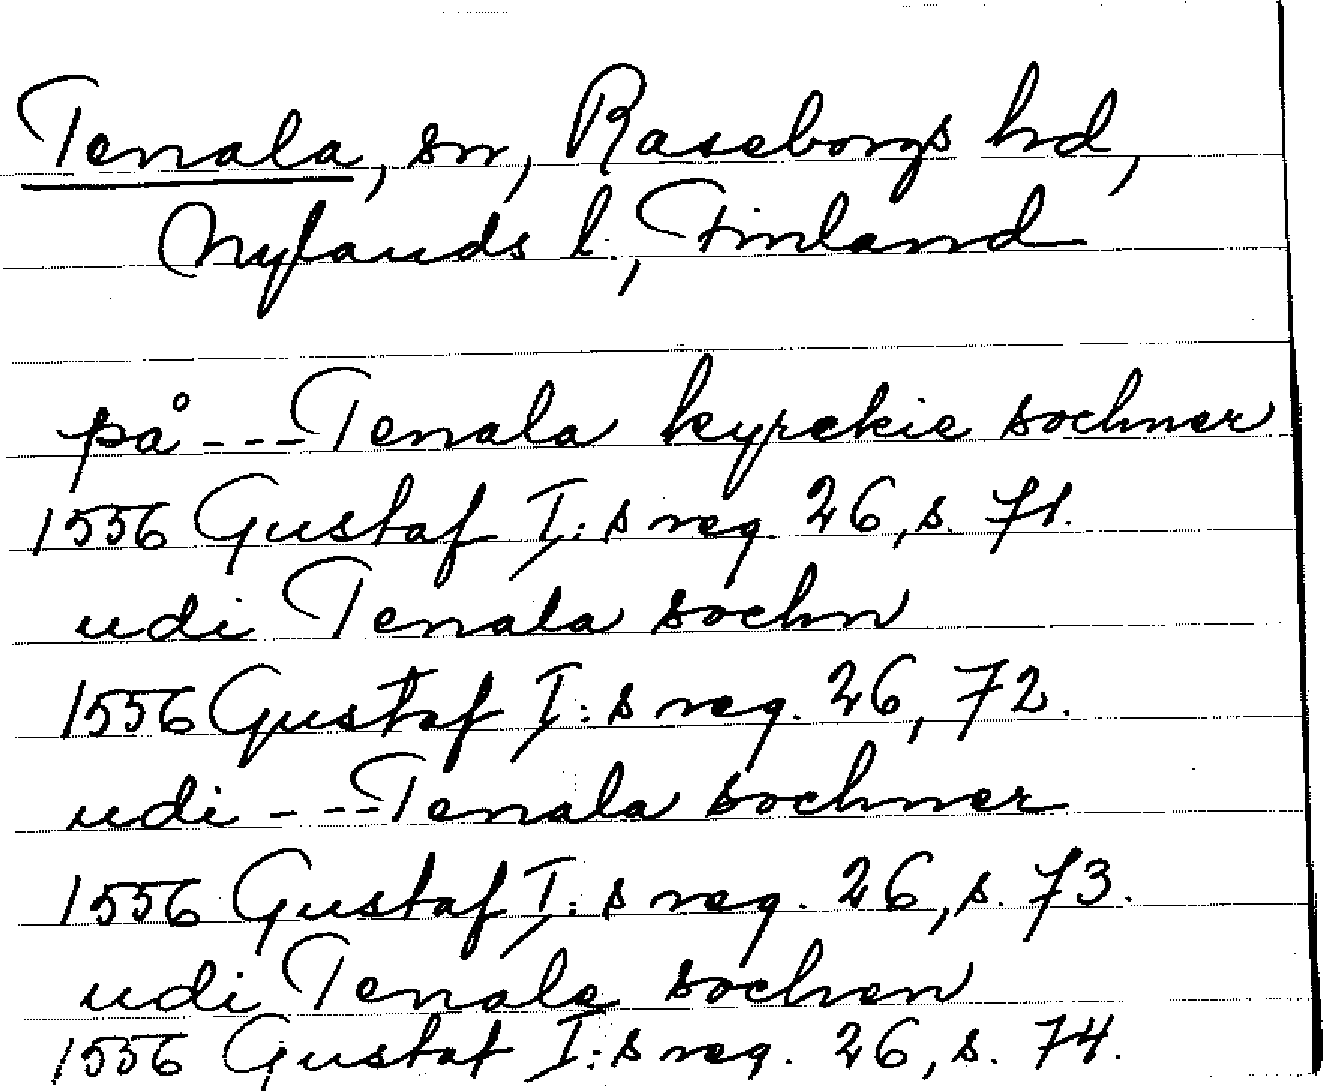 Tenala, sn, Raseborgs hd,
Nylands l., Finland
på --- Tenala kyrckie sochner
1556 Gustaf I:s reg. 26, s. 71.
udi Tenala sochn
1556 Gustaf I:s reg. 26, 72.
udi --- Tenala sochner
1556 Gustaf I:s reg. 26, s. 73.
udi Tenale sochen
1556 Gustaf I:s reg. 26, s. 74.